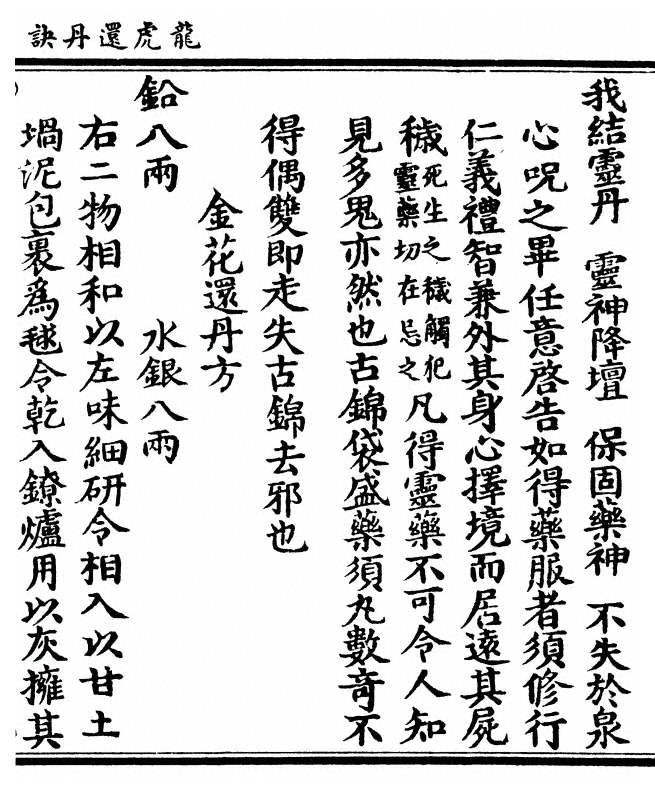 龍虎還丹訣
我結靈丹　靈神降壇　保固藥神　不失於泉
心呪之畢任意啓告如得藥服者須修行
仁義禮智兼外其身心擇境而居遠其屍
穢死生之穢觸犯靈藥切在忌之凡得靈藥不可令人知
見多鬼亦然也古錦袋盛藥須丸數奇不
得偶雙即走失古錦去邪也
金花還丹方
鉛八兩　水銀八兩
右二物相和以左味細研令相入以甘土
堝泥包裹爲毬令乾入鐐爐用以灰擁其